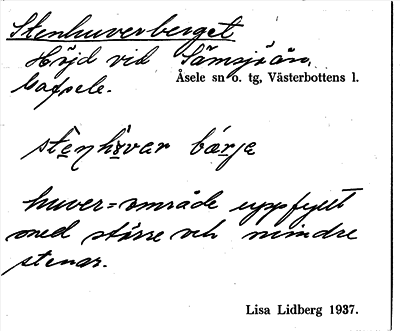 Stenhuverberget
Höjd vid Sämsjöån,
Gafsele.
Åsele sn o. tg, Västerbottens l.
stenhʉvar bárje
huver=område uppfyllt
med större och mindre
stenar.
Lisa Lidberg 1937.